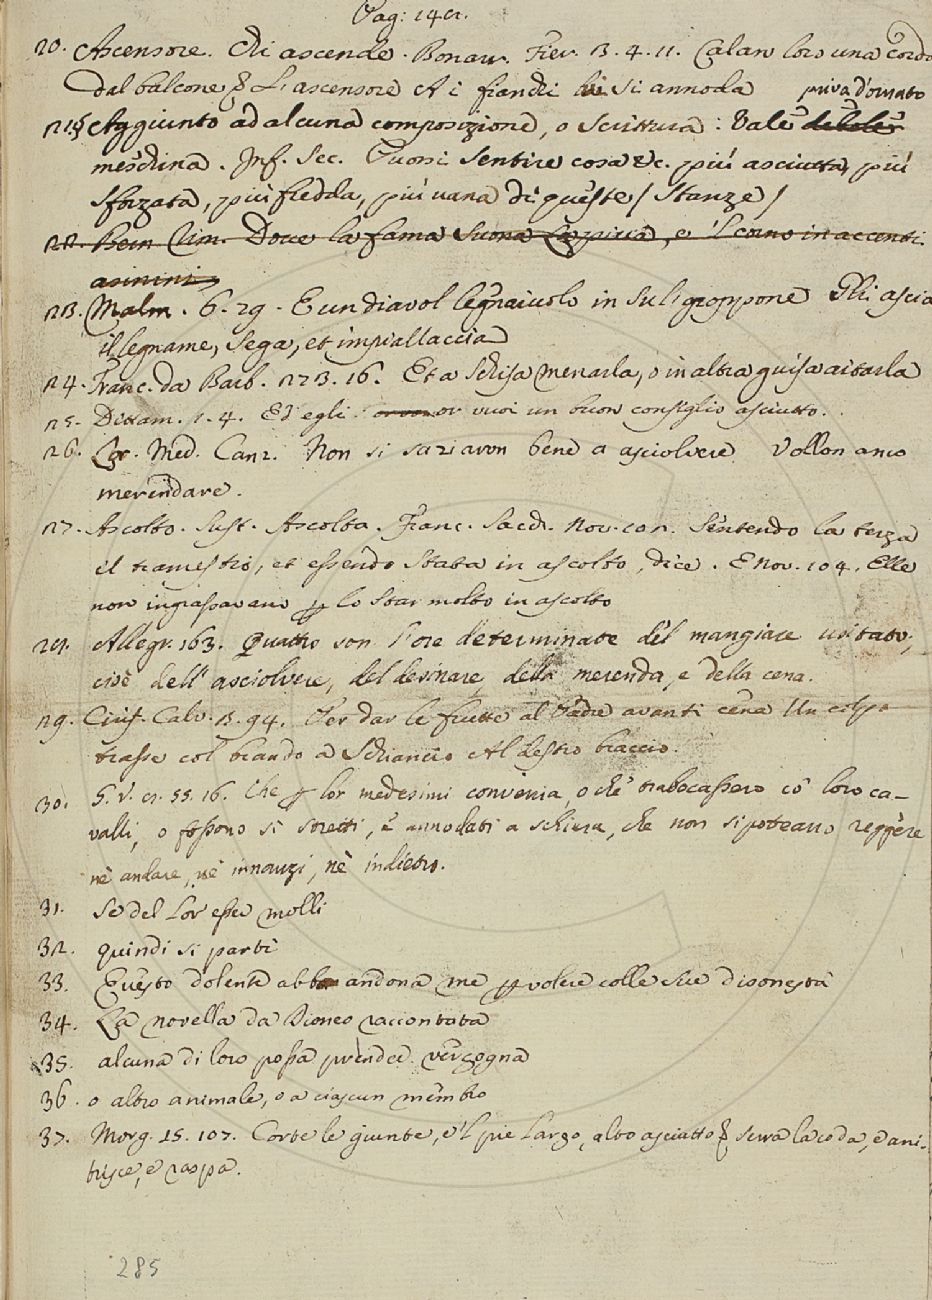 Pag: 148.
20. Ascensore. Chi ascende. Bonarr. Fier. 3. 4. 11. Calan loro una corda
dal balcone, L'ascensore A i fianchi si annoda priva d'ornato
21. Aggiunto ad alcuna composizione, o Scrittura: Vale debole
meschina. Inf. Sec. Puossi sentire cosa &c. più asciutta, più
sforzata, più fredda, più vana di queste / Stanze /
22. Bern. rim. Dove la fama suona la piva, e 'l corno in accenti
asinini
23. Malm. 6. 29. E un diavol legnaiuolo in sul groppone Gli ascia
il legname, sega, et impiallaccia
24. Franc. da Barb. 223. 16. Et a schisa menarla, o in altra guisa aitarla
25. Dittam. 1. 4. Ed egli or vuoi un buon consiglio asciutto.
26. Lor. Med. Canz. Non si saziaron bene a asciolvere Vollon anco
merendare.
27. Ascolto. Sust. Ascolta. Franc. Sacch. Nov. Sentendo la terza
il tramestio, et essendo stata in ascolto, dice. E nov. 104. Elle
non ingrassavano p lo star molto in ascolto
28. Allegr. 163. Quattro son l'ore determinate del mangiare usitato,
cioè dell'asciolvere, del desinare, della merenda, e della cena.
29. Ciriff. Calv. 3. 94. Per dar le frutte al Padre avanti cena Un colpo
trasse col brando a Schiancio Al destro braccio.
30. G. V. 8. 55. 16. Che p lor medesimi convenia, o che trabocassero co' loro ca-
valli, o fossono sì stretti, e annodati a schiera, che non si poteano reggere
nè andare, nè innanzi, nè indietro.
31. Se del lor esser molli
32. quindi si partì
33. Questo dolente abbandona me p volere colle sue disonestà
34. La novella da Dioneo raccontata
35. alcuna di loro possa prender vergogna
36. o altro animale, o a ciascun membro
37. Morg. 15. 107. Corte le giunte, e 'l piè largo, alto asciutto serra la coda, e ani-
trisce, e raspa.
285